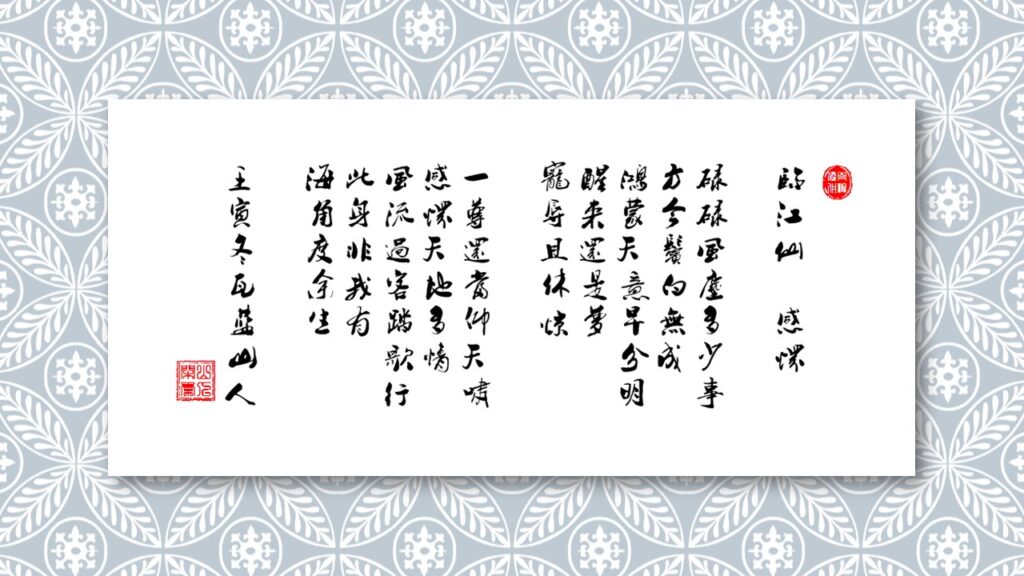 臨江仙 感懷
碌碌風塵多少事
方今鬢白無成
鴻蒙天意早分明
醒來還是夢
寵辱且休驚
一尊還當仰天嘯
感懷天地多情
風流過客踏歌行
此身非我有
海角度余生
壬寅冬瓦藍山人